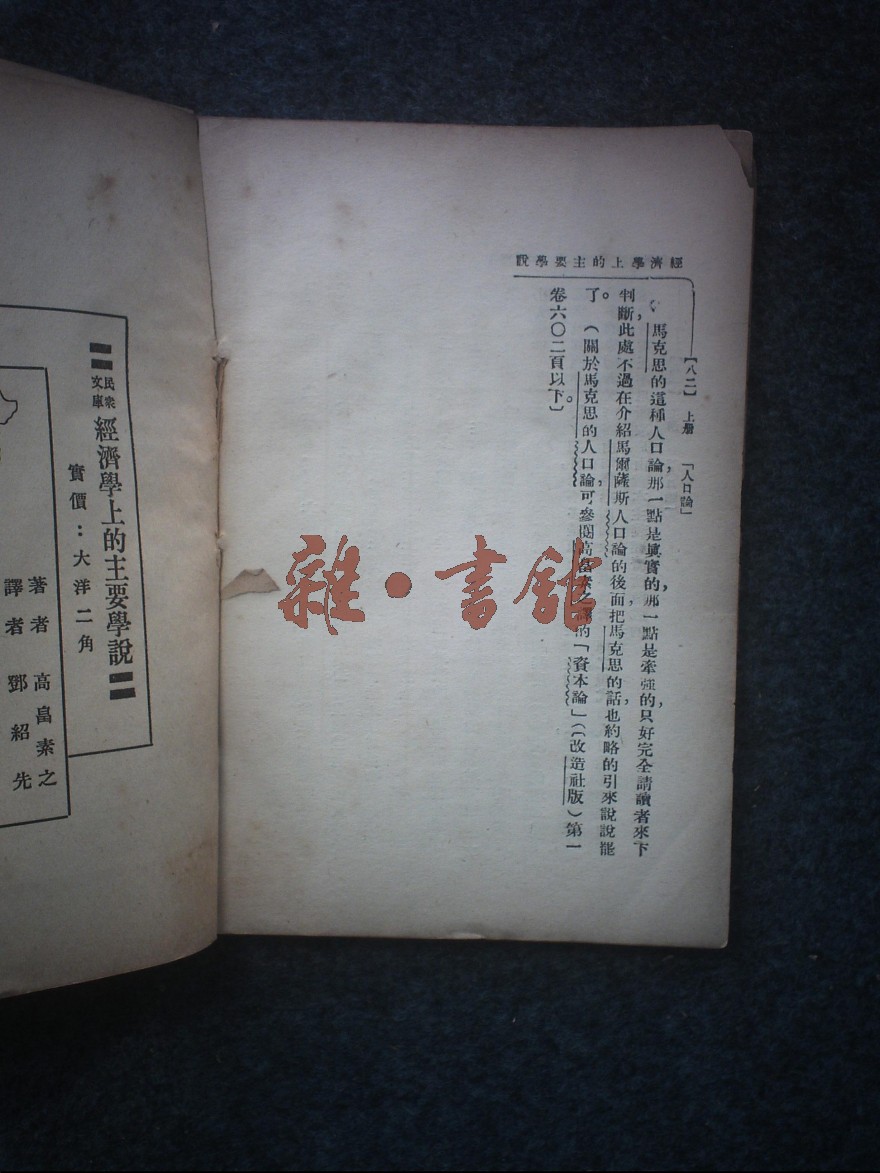 經濟學上的主要學說
【八二】 上册 「人口論」
馬克思的這種人口論,那一點是眞實的,那一點是牽強的,只好完全請讀者來下
判斷,此處不過在介紹馬爾薩斯人口論的後面,把馬克思的話,也約略的引來說說罷
了。(關於馬克思的人口論,可參閱高畠素之譯的「資本論」(改造社版)第一
卷六〇二頁以下。)
民衆文庫
經濟學上的主要學說
實價:大洋二角
著者 高畠素之
譯者 鄧紹先
雜·書館